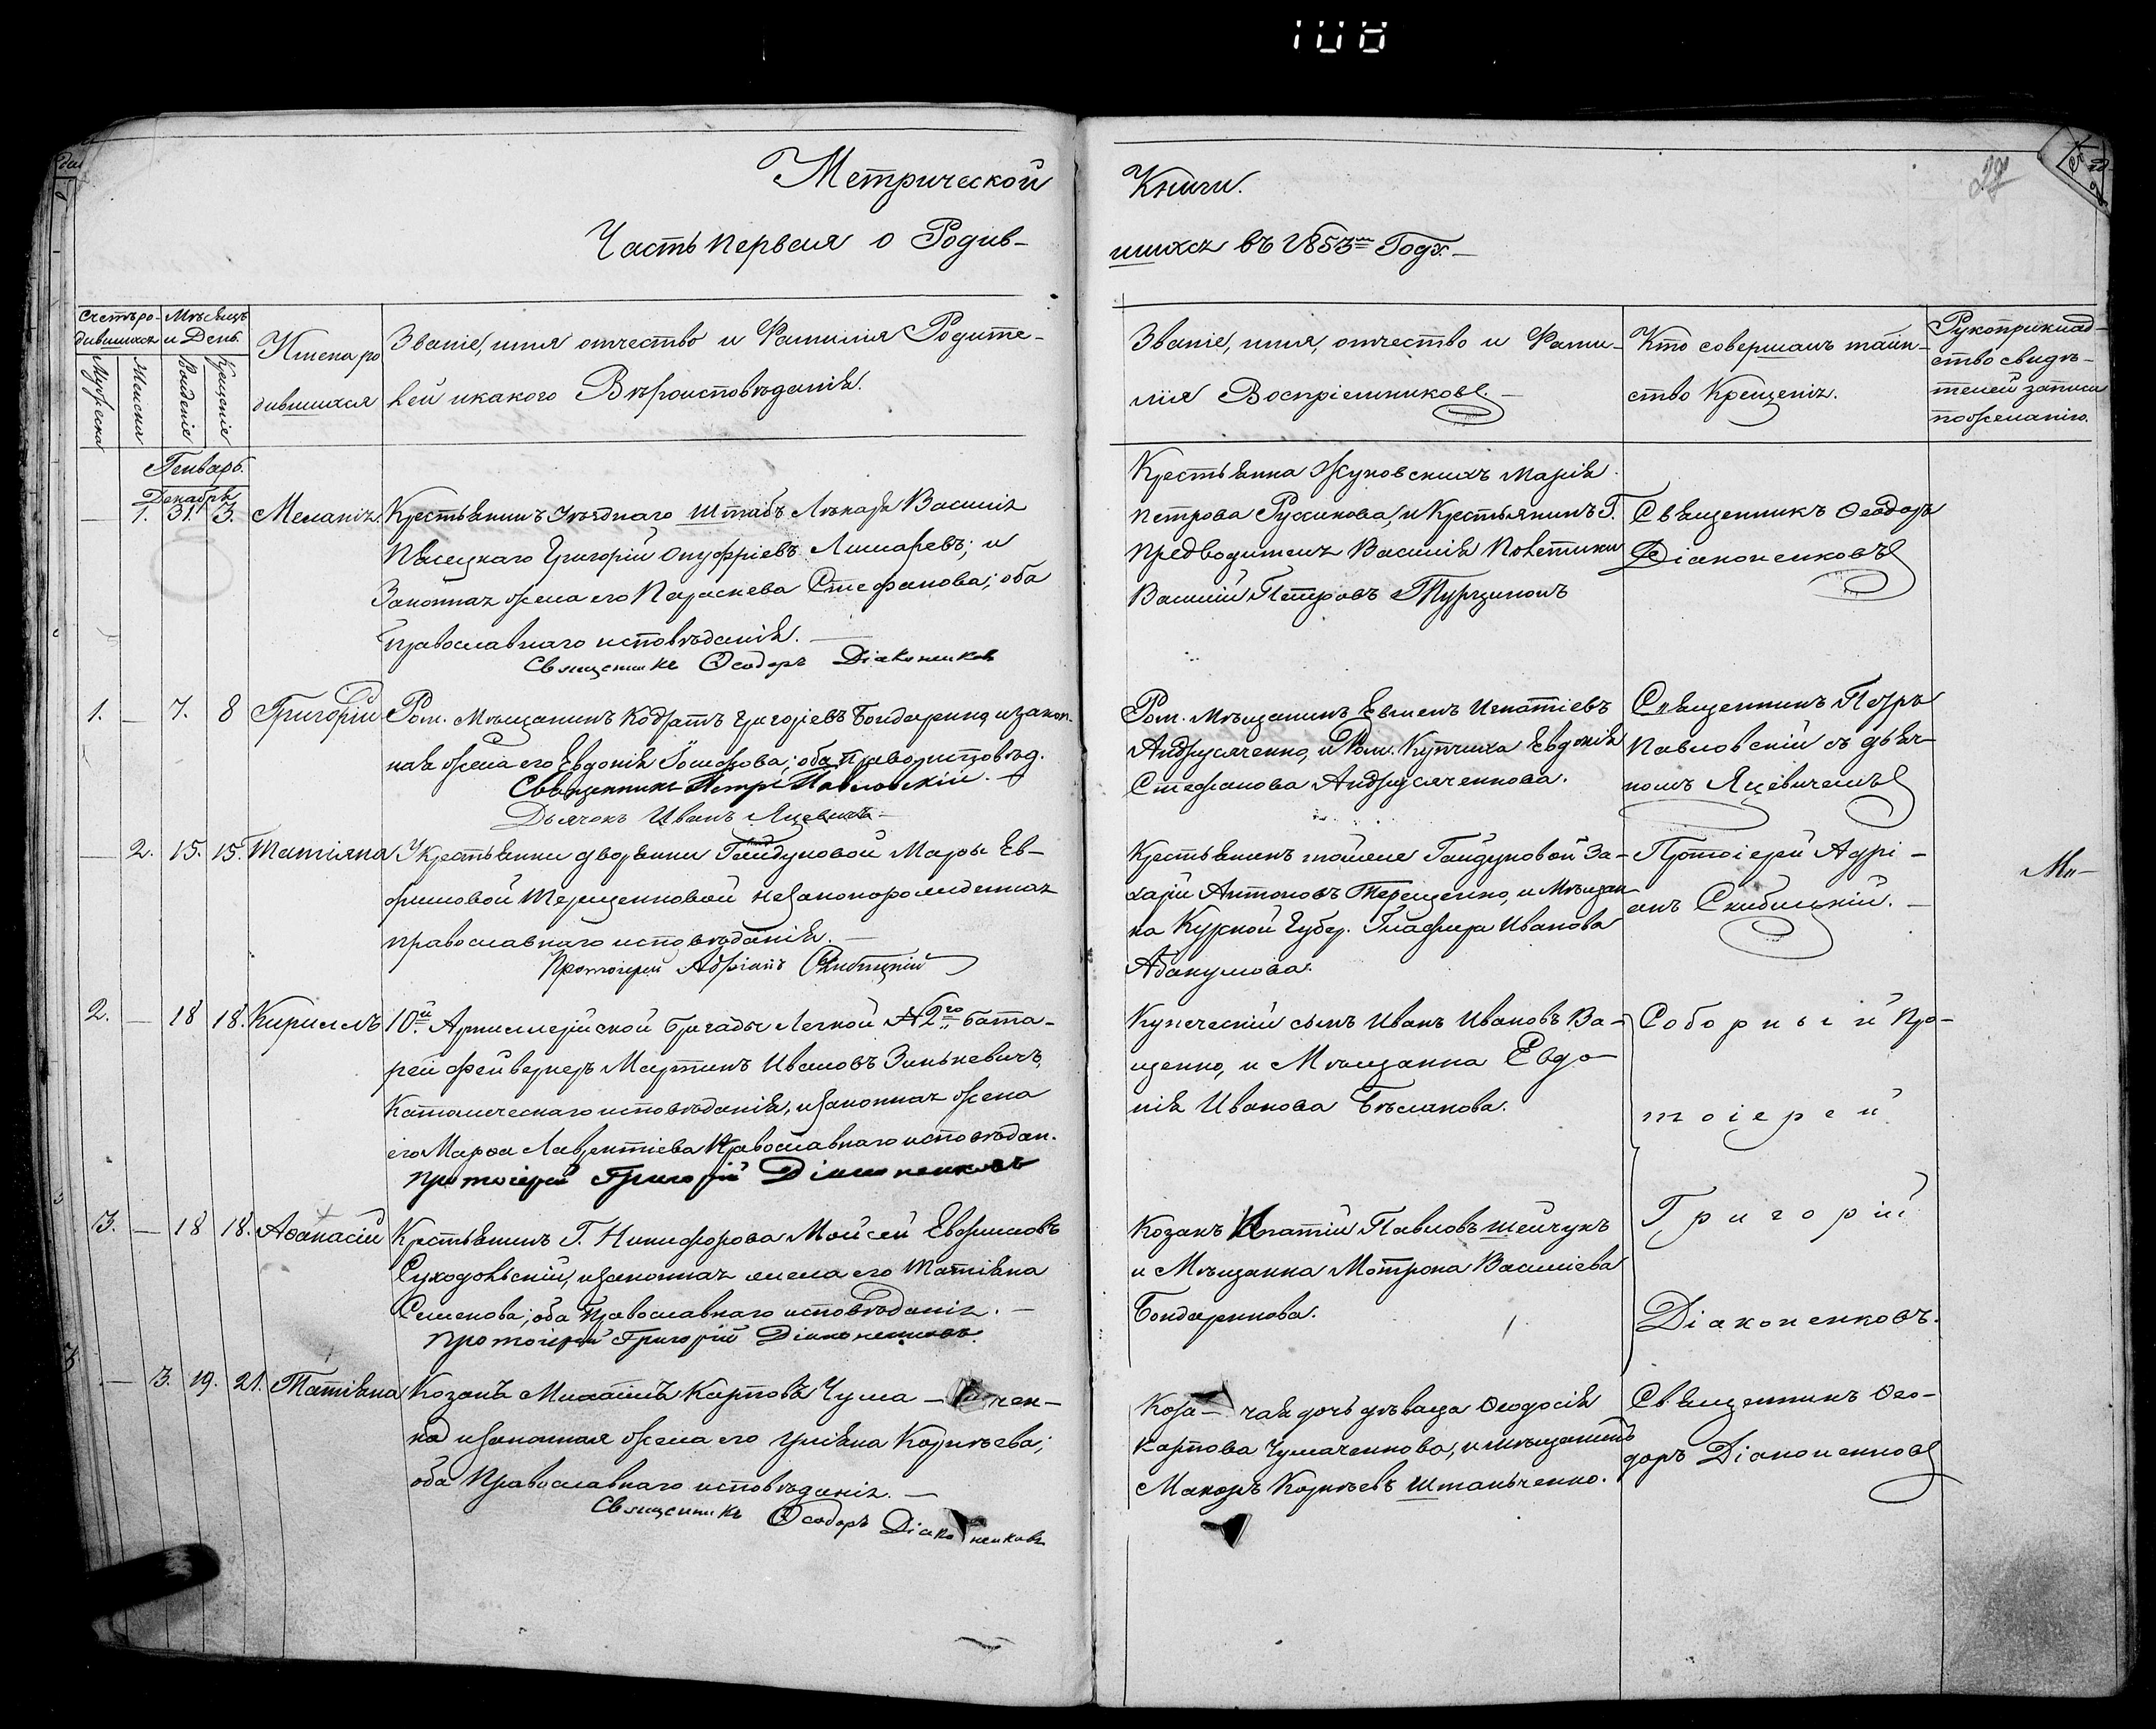 108
Метрической
Часть первая о Родив-
Книги.
шихся въ 1853мъ Годѣ. —
Счетъ ро-
дившихся
Мужеска
Женска
Мѣсяцъ
и День.
Рожденіе
Крещеніе
Имена ро
дившихся
Званіе, имя отчество и Фамилія Родите-
лей и какого Вѣроисповѣданія.
Званіе, имя, отчество и Фами-
лія Воспріемниковъ. —
Кто совершалъ таин-
ство Крещенія.
Рукоприклад-
ство свидѣ-
телей записи
по желанію.
Генварь.
Декабря
— 1. 31. 3. Меланія. Крестьянинъ Уѣзднаго Штабъ Лѣкаря Василія
Григорій Онуфріевъ; и
Законная жена его Параскева Стефанова; оба
Православнаго исповѣданія. —
Священникъ Ѳеодоръ Діаконенковъ
Крестьянка Жуковскихъ Марія
Петрова и Крестьянинъ Г.
Предводителя Василія Полетики
Василій Петровъ
Священникъ Ѳеодоръ
Діаконенковъ
1. — 7. 8 Григорій Ром. Мѣщанинъ Кодратъ Григоріевъ Бондаренко и закон.
ная жена его Евдокія Іосифова; оба Правосл. исповѣд.
Священникъ Петръ Павловскій. —
Дьячокъ Иванъ Яцевичъ
Ром. Мѣщанинъ Евменъ Игнатіевъ
Андрусяченко, и Ром. Купчиха Евдокія
Стефанова Андрусяченкова.
Священникъ Петръ
Павловскій съ дьяч-
комъ Яцевичемъ
— 2. 15. 15. Татіяна У Крестьянки дворянки Гайдуковой Марѳы Ев-
фимовой Терещенковой незаконорожденная
православнаго исповѣданія. —
Протоіерей Адріанъ Скибицкій
Крестьянинъ тойже Гайдуковой За-
харій Антоновъ Терещенко, и Мѣщан
ка Курской Губер. Глафира Иванова
Абакумова.
Протоіерей Адрі-
анъ Скибицкій. —
Мп-
2. — 18 18. Кириллъ 10й Артиллерійской бригады Легкой №2го бата-
реи фейверкеръ Мартинъ Ивановъ Зинькевичъ,
Католическаго исповѣданія, и законная жена
его Марѳа Лаврентіева Православнаго исповѣдан.
Протоіерей Григорій Діаконенковъ
Купеческій сынъ Иванъ Ивановъ Ва-
щенко, и Мѣщанка Евдо-
кія Иванова Бѣлакова.
Соборный Про-
тоіерей
3. — 18 18. Аѳанасій Крестьянинъ Г. Никифорова Мойсей Евфимовъ
Суходольскій, и законная жена его Татіяна
Семенова; оба Православнаго исповѣданія. —
Протоіерей Григорій Діаконенковъ
Козакъ Игнатій Павловъ Шейчукъ
и Мѣщанка Мотрона Василіева
Бондаренкова.
Григорій
Діаконенковъ.
— 3. 19. 21. Татіяна Козакъ Михаилъ Карповъ Чума — чен-
ко и законная жена его Уліяна Корнѣева;
оба Православнаго исповѣданія. —
Священникъ Ѳеодоръ Діаконенковъ
Коза — чая дочь дѣвица Ѳеодосія
Карпова Чумаченкова, и Мѣщанинъ
Макаръ Корнѣевъ Штаньченко.
Священникъ Ѳео-
доръ Діаконенковъ